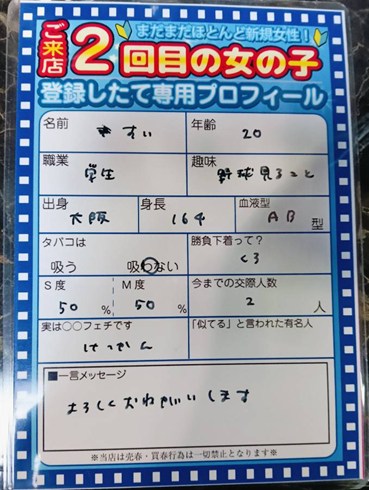 まだまだほとんど新規女性!
ご来店2回目の女の子
登録したて専用プロフィール
名前
年齢 20
職業 学生
趣味 野球見ること
出身 大阪
身長 164
血液型 AB型
タバコは
吸う 吸わない
勝負下着って?
くろ
S度 50%
M度 50%
今までの交際人数
2人
実は〇〇フェチです
けっかん
「似てる」と言われた有名人
■一言メッセージ
よろしくおねがいします
※当店は売春・買春行為は一切禁止となります※